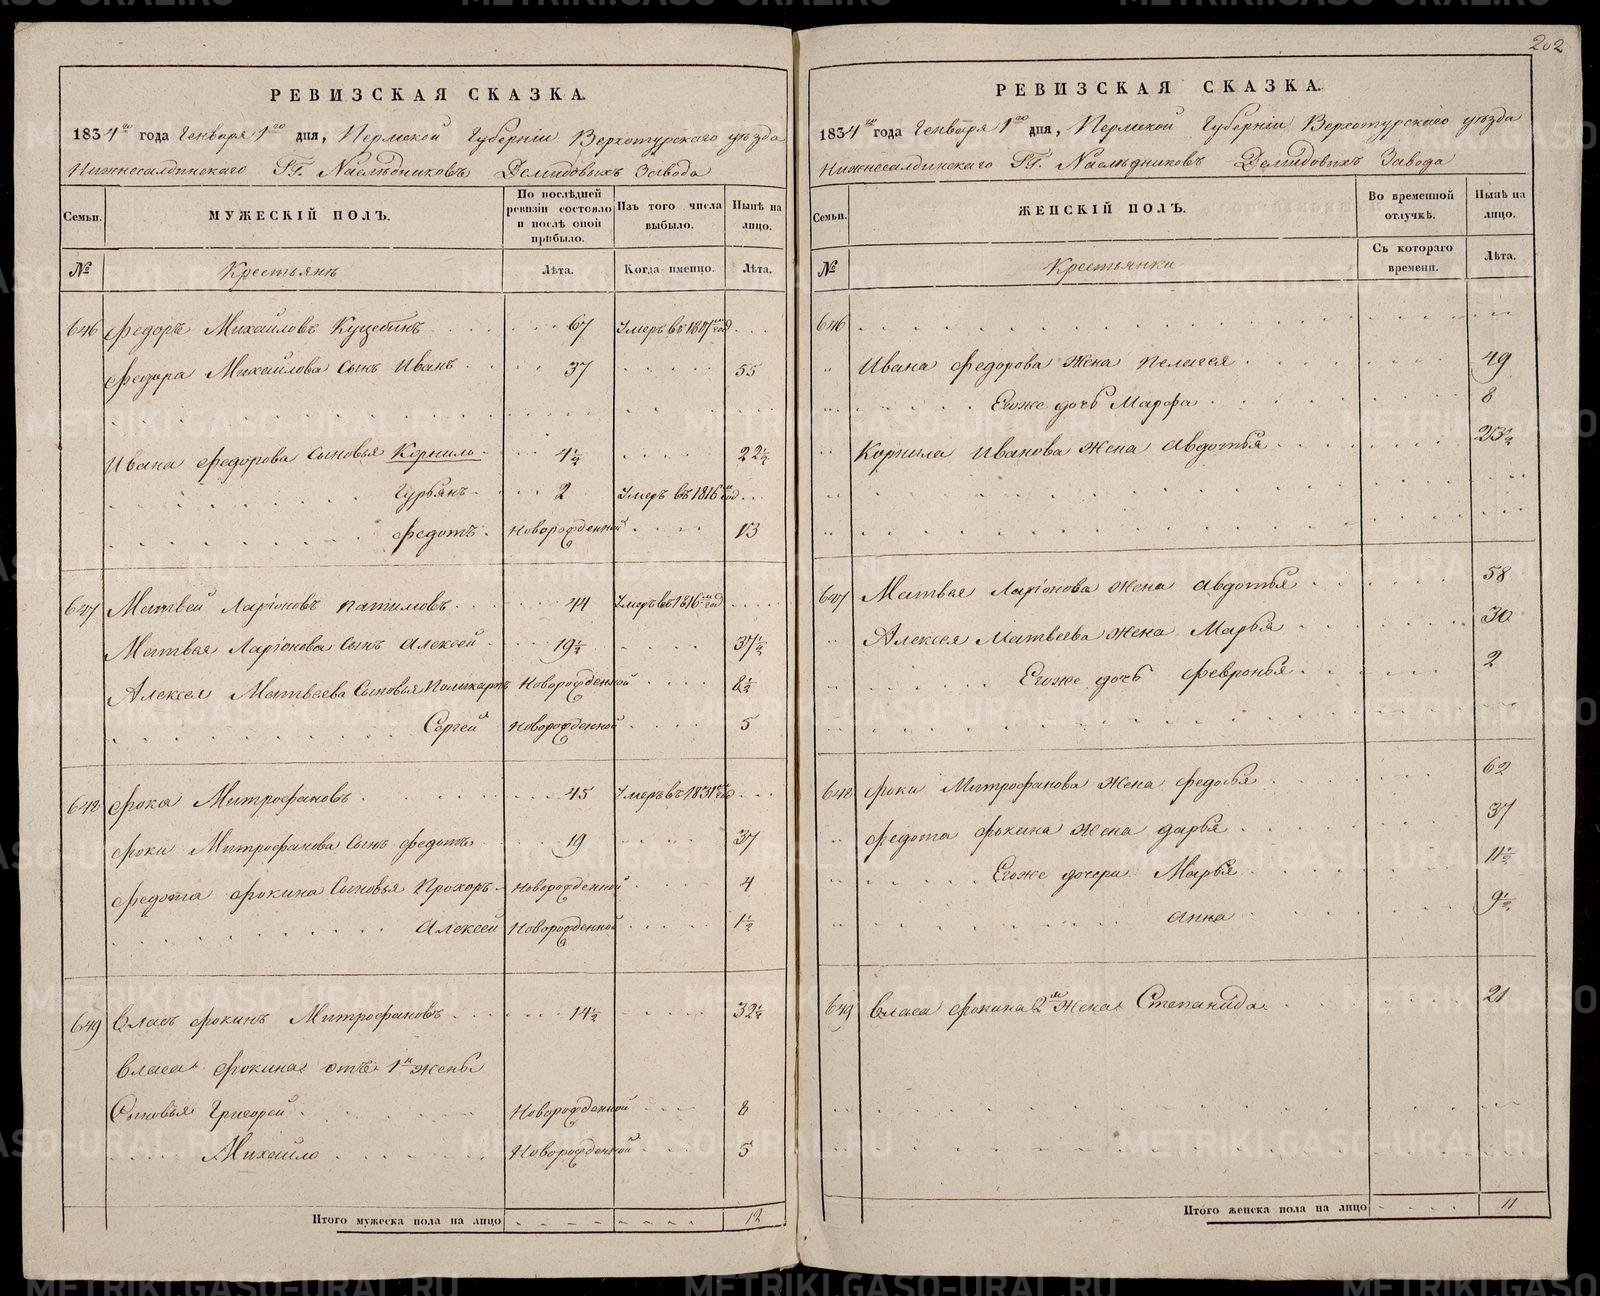 202
РЕВИЗСКАЯ СКАЗКА.
1834го года Генваря 1го дня, Пермской Губерніи Верхотурскаго уѣзда
Нижнесалдинскаго ГГ. Наслѣдниковъ Демидовыхъ Завода
Семьи. МУЖЕСКІЙ ПОЛЪ. По послѣдней ревизіи состояло и послѣ оной прибыло. Изъ того числа выбыло. Нынѣ на лицо.
№ Крестьянъ Лѣта. Когда именно. Лѣта.
646 Федоръ Михайловъ 67 Умеръ въ 1827м год
Федора Михайлова Сынъ Иванъ 37 55
Ивана Федорова Сыновья Корнило 4½ 22½
Гурьянъ 2 Умеръ въ 1816м год
Федотъ Новорожденной 13
647 Матвей Ларіоновъ Патимовъ 44 Умеръ въ 1816м год
Матвея Ларіонова Сынъ Алексей 19½ 37½
Алексея Матвеева Сыновья Поликарпъ Новорожденной 8½
Сергей Новорожденной 5
648 Фока Митрофановъ 45 Умеръ въ 1831м год
Фоки Митрофанова Сынъ Федотъ 19 37
Федота Фокина Сыновья Прохоръ Новорожденной 4
Алексей Новорожденной 1½
649 Власъ Фокинъ Митрофановъ 14½ 32½
Власа Фокина отъ 1й жены
Сыновья Григорей Новорожденной 8
Михайло Новорожденной 5
Итого мужеска пола на лицо 12
РЕВИЗСКАЯ СКАЗКА.
1834го года Генваря 1го дня, Пермской Губерніи Верхотурскаго уѣзда
Нижнесалдинскаго ГГ. Наслѣдниковъ Демидовыхъ Завода
Семьи. ЖЕНСКІЙ ПОЛЪ. Во временной отлучкѣ. Нынѣ на лицо.
№ Крестьянки Съ котораго времени. Лѣта.
646
Ивана Федорова жена Пелагея 49
Егоже дочь Марфа 8
Корнила Иванова жена Авдотья 23½
647 Матвея Ларіонова жена Авдотья 58
Алексея Матвеева жена Марья 30
Егоже дочь Февронья 2
648 Фоки Митрофанова жена Федосья 62
Федота Фокина жена Дарья 37
Егоже дочери Марья 11½
Анна 9½
649 Власа Фокина 2я жена Степанида 21
Итого женска пола на лицо 11
METRIKI.GASO-URAL.RU